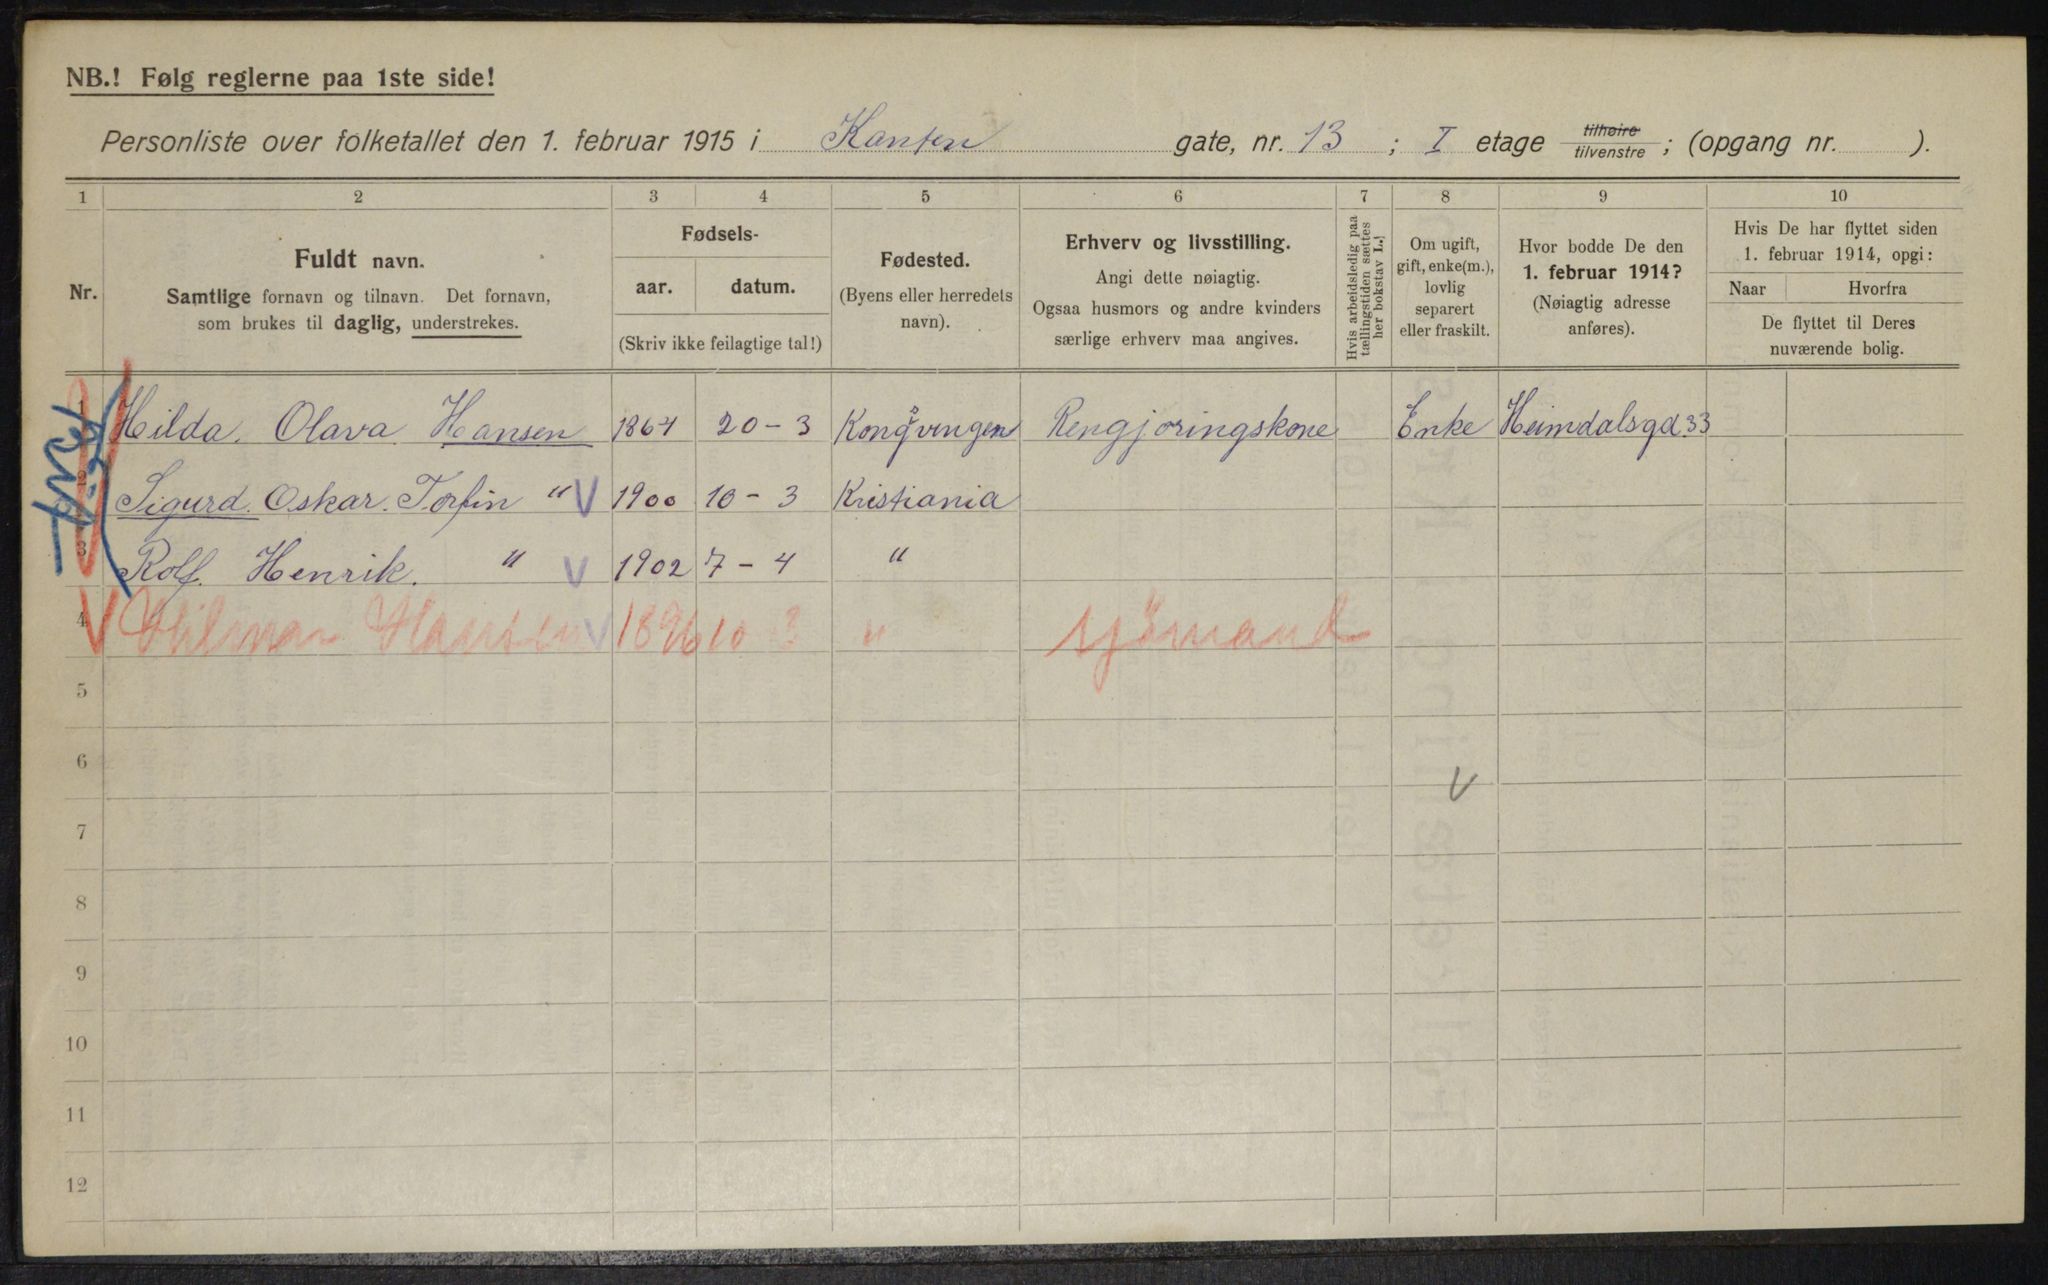 NB.! Følg reglerne paa 1ste side!
Personliste over folketallet den 1. februar 1915 i Kanten gate, nr. 13 ; I etage tilhøire tilvenstre ; (opgang nr. ).
1 2 3 4 5 6 7 8 9 10
Nr.
Fuldt navn.
Samtlige fornavn og tilnavn. Det fornavn,
som brukes til daglig, understrekes.
Fødsels-
aar. datum.
(Skriv ikke feilagtige tal!)
Fødested.
(Byens eller herredets
navn).
Erhverv og livsstilling.
Angi dette nøiagtig.
Ogsaa husmors og andre kvinders
særlige erhverv maa angives.
Hvis arbeidsledig paa
tællingstiden sættes
her bokstav L.
Om ugift,
gift, enke(m.),
lovlig
separert
eller fraskilt.
Hvor bodde De den
1. februar 1914?
(Nøiagtig adresse
anføres).
Hvis De har flyttet siden
1. februar 1914, opgi:
Naar Hvorfra
De flyttet til Deres
nuværende bolig.
1 Hilda. Olava. Hansen 1864 20-3 Kongsvingen Rengjøringskone Enke Heimdalsgd. 33
2 Sigurd. Oskar. Torfin " V 1900 10-3 Kristiania
3 Rolf. Henrik. " V 1902 7-4 "
V 4 Hilmar Hansen V 1896 10 3 " sjömand
5
6
V
7
8
9
10
11
12